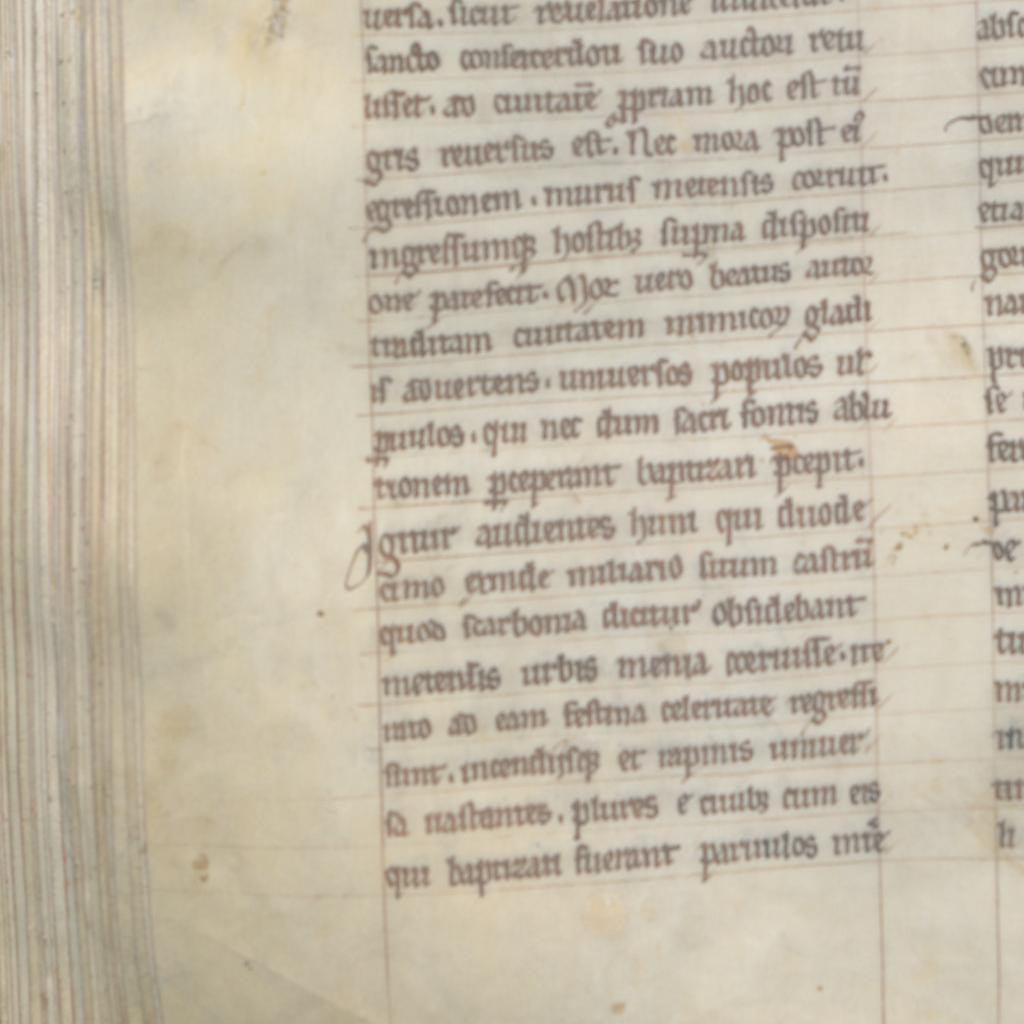 uersa. sicut reuelatione
sancto consecerdoti suo auctori retu
lisset. ad ciuitatē ꝓpriam hoc est tū
gris reuersus est. Nec mora post eiꝰ
egressionem. murus metensis corruit.
ingressumqꝫ hostibꝫ sup̄na dispositi
one patefecit. Mox uero beatus autor
traditam ciuitatem inimicoꝝ gladi
is aduertens. uniuersos populos ut
paruulos. qui nec dum sacri fontis ablu
tionem ꝑceperant baptizari p̄cepit.
Igitur audientes huni qui duode
cimo exinde miliario situm castrū
quod scarbona dicitur obsidebant
metensis urbis menia corruisse. ite
rato ad eam festina celeritate regressi
sunt. incendijsqꝫ et rapinis uniuer
sa uastantes. plures e ciuibꝫ cum eis
qui baptizati fuerant paruulos int̄e
absc
cum
uen
qui
etia
nar
se
de